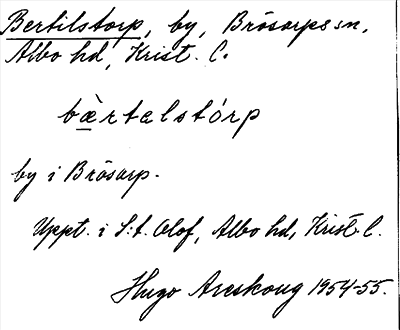 Bertilstorp, by, Brösarps sn,
Albo hd, Krist. l.
bæ̀rtəlstórp
by i Brösarp.
Uppt. i S:t. Olof, Albo hd, Krist. l.
Hugo Areskoug 1954-55.